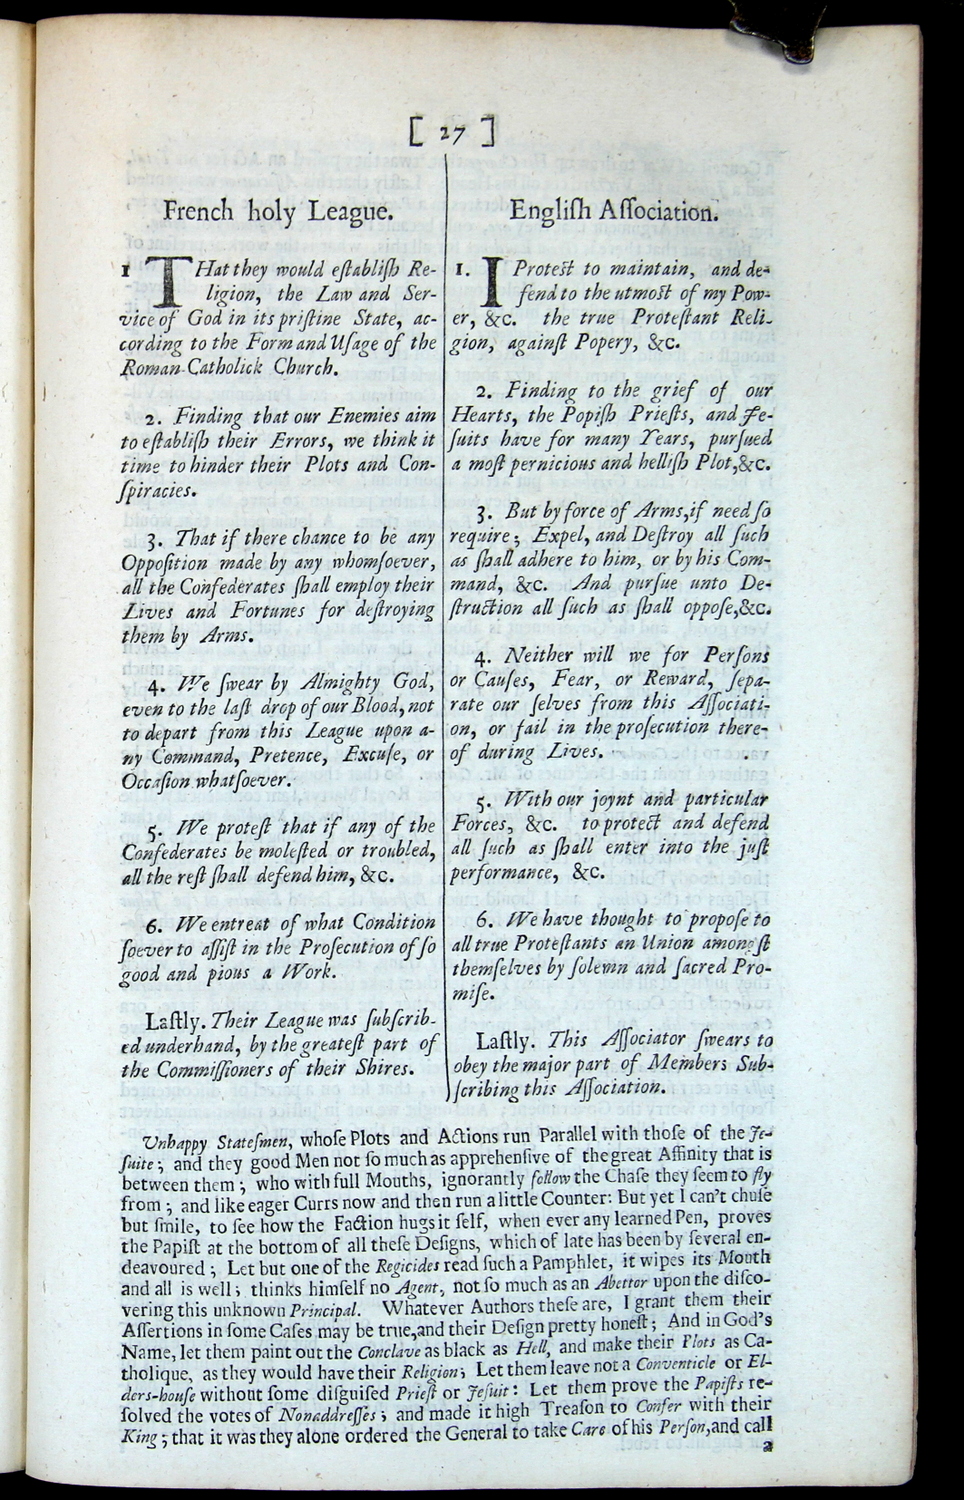 [ 27 ]
French holy League.
1 THat they would eſtabliſh Re-
ligion, the Law and Ser-
vice of God in its priſtine State, ac-
cording to the Form and Uſage of the
Roman-Catholick Church.
2. Finding that our Enemies aim
to eſtabliſh their Errors, we think it
time to hinder their Plots and Con-
ſpiracies.
3. That if there chance to be any
Oppoſition made by any whomſoever,
all the Confederates ſhall employ their
Lives and Fortunes for deſtroying
them by Arms.
4. We ſwear by Almighty God,
even to the laſt drop of our Blood, not
to depart from this League upon a-
ny Command, Pretence, Excuſe, or
Occaſion whatſoever.
5. We proteſt that if any of the
Confederates be moleſted or troubled,
all the reſt ſhall defend him, &c.
6. We entreat of what Condition
ſoever to aſſiſt in the Proſecution of ſo
good and pious a Work.
Laſtly. Their League was ſubſcrib-
ed underhand, by the greateſt part of
the Commiſſioners of their Shires.
Engliſh Aſſociation.
1. I Proteſt to maintain, and de-
fend to the utmoſt of my Pow-
er, &c. the true Proteſtant Reli-
gion, againſt Popery, &c.
2. Finding to the grief of our
Hearts, the Popiſh Prieſts, and Je-
ſuits have for many Years, purſued
a moſt pernicious and helliſh Plot,&c.
3. But by force of Arms,if need ſo
require; Expel, and Deſtroy all ſuch
as ſhall adhere to him, or by his Com-
mand, &c. And purſue unto De-
ſtruction all ſuch as ſhall oppoſe,&c.
4. Neither will we for Perſons
or Cauſes, Fear, or Reward, ſepa-
rate our ſelves from this Aſſociati-
on, or fail in the proſecution there-
of during Lives.
5. With our joynt and particular
Forces, &c. to protect and defend
all ſuch as ſhall enter into the juſt
performance, &c.
6. We have thought to propoſe to
all true Proteſtants an Union amongſt
themſelves by ſolemn and ſacred Pro-
miſe.
Laſtly. This Aſſociator ſwears to
obey the major part of Members Sub-
ſcribing this Aſſociation.
Unhappy Stateſmen, whoſe Plots and Actions run Parallel with thoſe of the Je-
ſuite; and they good Men not ſo much as apprehenſive of the great Affinity that is
between them; who with full Mouths, ignorantly follow the Chaſe they ſeem to fly
from; and like eager Currs now and then run a little Counter: But yet I can't chuſe
but ſmile, to ſee how the Faction hugs it ſelf, when ever any learned Pen, proves
the Papiſt at the bottom of all theſe Deſigns, which of late has been by ſeveral en-
deavoured; Let but one of the Regicides read ſuch a Pamphlet, it wipes its Mouth
and all is well; thinks himſelf no Agent, not ſo much as an Abettor upon the diſco-
vering this unknown Principal. Whatever Authors theſe are, I grant them their
Aſſertions in ſome Caſes may be true,and their Deſign pretty honeſt; And in God's
Name, let them paint out the Conclave as black as Hell, and make their Plots as Ca-
tholique, as they would have their Religion; Let them leave not a Conventicle or El-
ders-houſe without ſome diſguiſed Prieſt or Jeſuit: Let them prove the Papiſts re-
ſolved the votes of Nonaddreſſes; and made it high Treaſon to Confer with their
King; that it was they alone ordered the General to take Care of his Perſon,and call
a